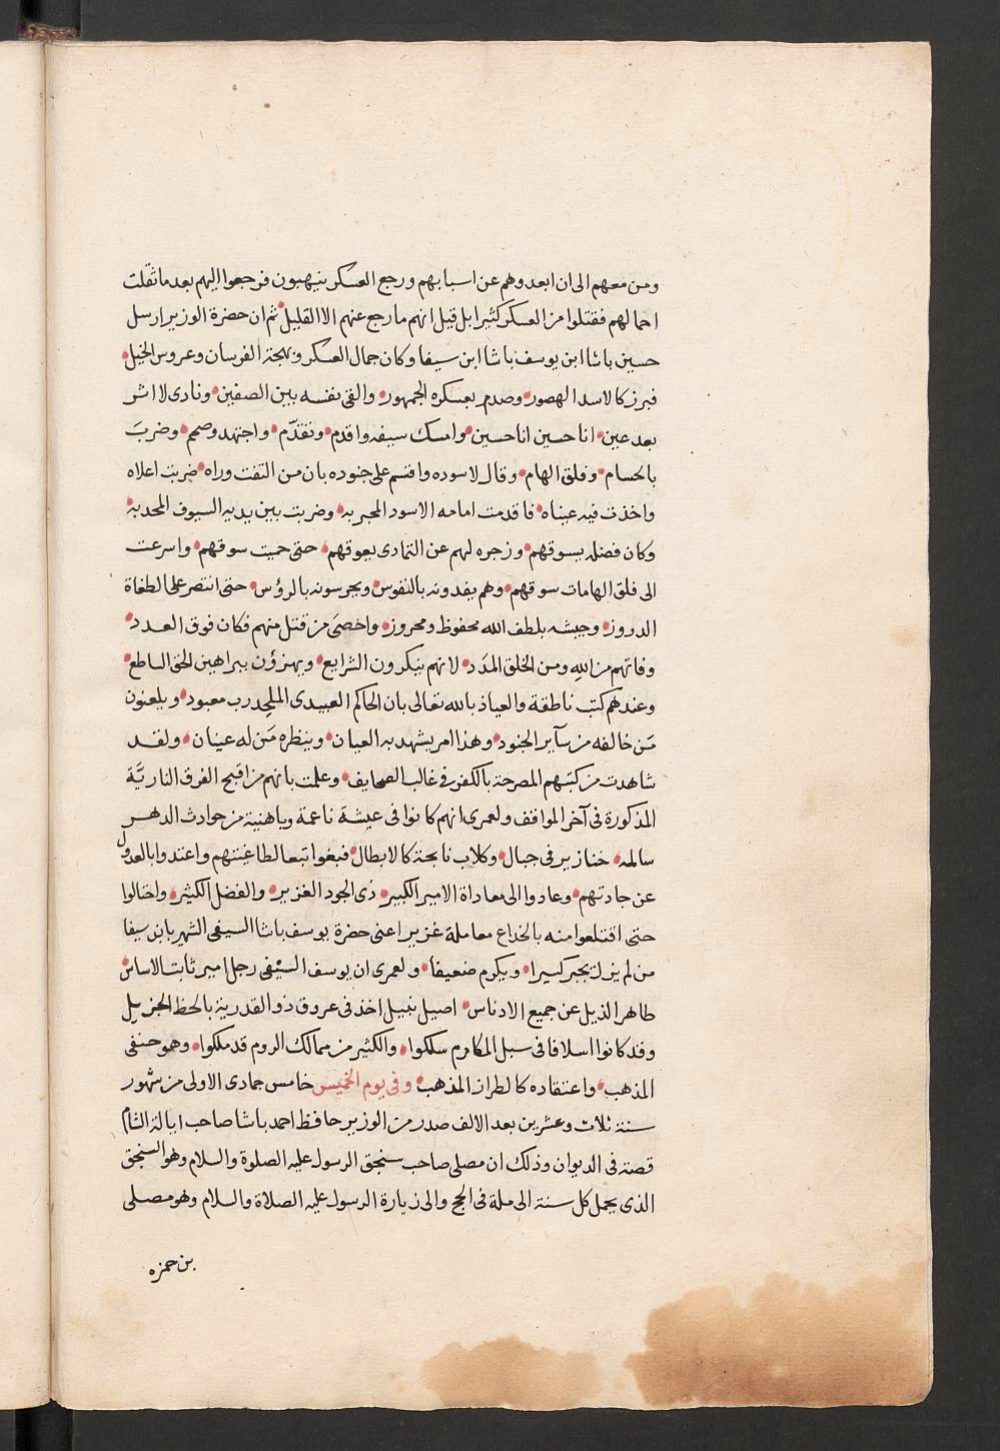 ومن معهم الى ان ابعدوهم عن اسبابهم ورجع العسكر ينهبون فرجعوا اليهم بعد ما ثقلت
احمالهم فقتلوا من العسكر كثيرا بل قيل انهم ما رجع عنهم الا القليل ثم ان حضرة الوزير ارسل
حسين باشا ابن يوسف باشا ابن سيفا وكان جمال العسكر وبهجة الفرسان وعروس الخيل
فبرز كالاسد الهصور وصدم بعسكره الجمهور والقى نفسه بين الصفين ونادى لا اثر
بعد عين انا حسين انا حسين وامسك سيفه واقدم وتقدّم واجتهد وصمم وضربَ
بالحسام وفلق الهام وقال لاسوده واقسم على جنوده بان من التفت وراه ضربت اعلاه
واخذت فيه عيناه فاقدمت امامه الاسود المجربه وضربت بين يديه السيوف المحدبه
وكان فضله يسوقهم وزجره لهم عن التمادى يعوقهم حتى حميت سوقهم واسرعت
الى فلق الهامات سوقهم وهم يفدونه بالنفوس ويحرسونه بالرؤس حتى انتصر على الطغاة
الدروز وجيشه بلطف الله محفوظ ومحروز واحصَى من قتل منهم فكان فوق العدد
وفاتهم من اللهِ ومن الخلق المدَد لانهم ينكرون الشرايع ويهزؤن ببراهين الحق الساطع
وعندهم كتب ناطقة والعياذ بالله تعالى بان الحاكم العبيدى الملحِد رب معبود ويلعنون
مَن خالفه من سآير الجنود وهذا امر يشهد به العيان وينظره مَن له عينان ولقد
شاهدت من كتبهم المصرحة بالكفر فى غالب الصحايف وعلمت بانهم من اقبح الفرق الناريَّة
المذكورة فى آخر المواقف ولعمرى انهم كانوا فى عيشة ناعمة وباهنية من حوادث الدهر
سالمه خنازير فى جبال وكلاب نابحة كالابطال فبغوا تبعا لطاغيتهم واعتدوا بالعدول
عن جادتهم وعادوا الى معاداة الامير الكبير ذى الجود الغزير والفضل الكثير واحتالوا
حتى اقتلعوا منه بالخداع معاملة غزير اعنى حضرة يوسف باشا السيفى الشهير بابن سيفا
من لم يزل يجبر كسيرا ويكرم ضعيفا ولعمرى ان يوسف السيْفى رجل امير ثابت الاساس
طاهر الذيل عن جميع الادناس اصيل نبيل اخذ فى عروق ذو القدرية بالحظ الجزيل
وقد كانوا اسلافا فى سبل المكارم سلكوا والكثير من ممالك الروم قد ملكوا وهو حنفى
المذهب واعتقاده كالطراز المذهب وفى يوم الخميس خامس جمادى الاولى من شهور
سنة ثلاث وعشرين بعد الالف صدر من الوزير حافظ احمد باشا صاحب ايالة الشام
قصة فى الديوان وذلك ان مصلى صاحب سنجق الرسول عليه الصلوة والسلام وهو السنجق
الذى يحمل كل سنة الى مكة فى الحج والى زيارة الرسول عليه الصلاة والسلام وهو مصلى
بن حمزه